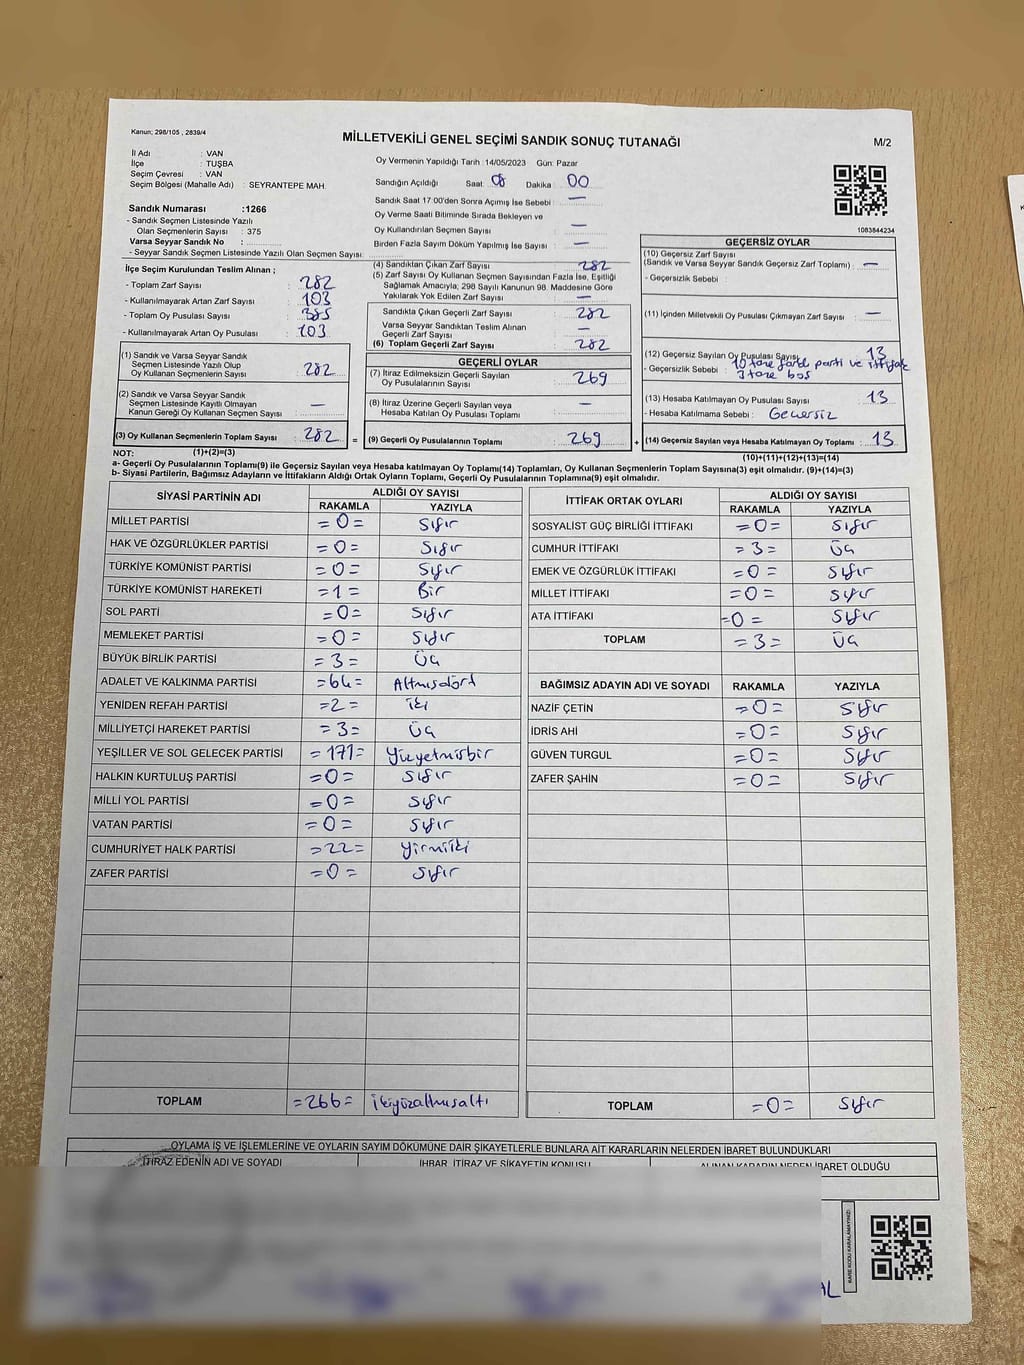 Kanun; 298/105 , 2839/4
MİLLETVEKİLİ GENEL SEÇİMİ SANDIK SONUÇ TUTANAĞI
M/2
İl Adı : VAN
İlçe : TUŞBA
Seçim Çevresi : VAN
Seçim Bölgesi (Mahalle Adı) : SEYRANTEPE MAH.
Oy Vermenin Yapıldığı Tarih :14/05/2023 Gün: Pazar
Sandığın Açıldığı Saat: 08 Dakika : 00
Sandık Saat 17:00'den Sonra Açımış İse Sebebi : —
Oy Verme Saati Bitiminde Sırada Bekleyen ve
Oy Kullandırılan Seçmen Sayısı : —
Birden Fazla Sayım Döküm Yapılmış İse Sayısı : —
1083844234
Sandık Numarası :1266
- Sandık Seçmen Listesinde Yazılı
Olan Seçmenlerin Sayısı : 375
Varsa Seyyar Sandık No :
- Seyyar Sandık Seçmen Listesinde Yazılı Olan Seçmen Sayısı
İlçe Seçim Kurulundan Teslim Alınan ;
- Toplam Zarf Sayısı : 282
- Kullanılmayarak Artan Zarf Sayısı : 103
- Toplam Oy Pusulası : 385
- Kullanılmayarak Artan Oy Pusulası : 103
(1) Sandık ve Varsa Seyyar Sandık
Seçmen Listesinde Yazılı Olup
Oy Kullanan Seçmenlerin Sayısı : 282
(2) Sandık ve Varsa Seyyar Sandık
Seçmen Listesinde Kayıtlı Olmayan
Kanun Gereği Oy Kullanan Seçmen Sayısı : —
(3) Oy Kullanan Seçmenlerin Toplam Sayısı : 282
(4) Sandıktan Çıkan Zarf Sayısı : 282
(5) Zarf Sayısı Oy Kullanan Seçmen Sayısından Fazla İse, Eşitliği
Sağlamak Amacıyla; 298 Sayılı Kanunun 98. Maddesine Göre
Yakılarak Yok Edilen Zarf Sayısı : —
Sandıkta Çıkan Geçerli Zarf Sayısı : 282
Varsa Seyyar Sandıktan Teslim Alınan
Geçerli Zarf Sayısı : —
(6) Toplam Geçerli Zarf Sayısı : 282
GEÇERLİ OYLAR
(7) İtiraz Edilmeksizin Geçerli Sayılan
Oy Pusulalarının Sayısı : 269
(8) İtiraz Üzerine Geçerli Sayılan veya
Hesaba Katılan Oy Pusulası Toplamı : —
= (9) Geçerli Oy Pusulalarının Toplamı : 269
GEÇERSİZ OYLAR
(10) Geçersiz Zarf Sayısı
(Sandık ve Varsa Seyyar Sandık Geçersiz Zarf Toplamı) : —
- Geçersizlik Sebebi :
(11) İçinden Milletvekili Oy Pusulası Çıkmayan Zarf Sayısı : —
(12) Geçersiz Sayılan Oy Pusulası Sayısı : 13
- Geçersizlik Sebebi : 10 tane farklı parti ve ittifak
3 tane boş
(13) Hesaba Katılmayan Oy Sayısı : 13
- Hesaba Katılmama Sebebi : Geçersiz
+ (14) Geçersiz Sayılan veya Hesaba Katılmayan Oy Toplamı : 13
NOT: (1)+(2)=(3)
(10)+(11)+(12)+(13)=(14)
a- Geçerli Oy Pusulalarının Toplamı(9) ile Geçersiz Sayılan veya Hesaba katılmayan Oy Toplamı(14) Toplamları, Oy Kullanan Seçmenlerin Toplam Sayısına(3) eşit olmalıdır. (9)+(14)=(3)
b- Siyasi Partilerin, Bağımsız Adayların ve İttifakların Aldığı Ortak Oyların Toplamı, Geçerli Oy Pusulalarının Toplamına(9) eşit olmalıdır.
SİYASİ PARTİNİN ADI ALDIĞI OY SAYISI
RAKAMLA YAZIYLA
MİLLET PARTİSİ =0= Sıfır
HAK VE ÖZGÜRLÜKLER PARTİSİ =0= Sıfır
TÜRKİYE KOMÜNİST PARTİSİ =0= Sıfır
TÜRKİYE KOMÜNİST HAREKETİ =1= Bir
SOL PARTİ =0= Sıfır
MEMLEKET PARTİSİ =0= Sıfır
BÜYÜK BİRLİK PARTİSİ =3= Üç
ADALET VE KALKINMA PARTİSİ =64= Altmışdört
YENİDEN REFAH PARTİSİ =2= İki
MİLLİYETÇİ HAREKET PARTİSİ =3= Üç
YEŞİLLER VE SOL GELECEK PARTİSİ =171= Yüzyetmişbir
HALKIN KURTULUŞ PARTİSİ =0= Sıfır
MİLLİ YOL PARTİSİ =0= Sıfır
VATAN PARTİSİ =0= Sıfır
CUMHURİYET HALK PARTİSİ =22= Yirmiiki
ZAFER PARTİSİ =0= Sıfır
TOPLAM =266= ikiyüzaltmışaltı
İTTİFAK ORTAK OYLARI ALDIĞI OY SAYISI
RAKAMLA YAZIYLA
SOSYALİST GÜÇ BİRLİĞİ İTTİFAKI =0= Sıfır
CUMHUR İTTİFAKI =3= Üç
EMEK VE ÖZGÜRLÜK İTTİFAKI =0= Sıfır
MİLLET İTTİFAKI =0= Sıfır
ATA İTTİFAKI =0= Sıfır
TOPLAM =3= Üç
BAĞIMSIZ ADAYIN ADI VE SOYADI RAKAMLA YAZIYLA
NAZİF ÇETİN =0= Sıfır
İDRİS AHİ =0= Sıfır
GÜVEN TURGUL =0= Sıfır
ZAFER ŞAHİN =0= Sıfır
TOPLAM =0= Sıfır
OYLAMA İŞ VE İŞLEMLERİNE VE OYLARIN SAYIM DÖKÜMÜNE DAİR ŞİKAYETLERLE BUNLARA AİT KARARLARIN NELERDEN İBARET BULUNDUKLARI
İTİRAZ EDENİN ADI VE SOYADI İHBAR, İTİRAZ VE ŞİKAYETİN KONUSU ALINAN KARARIN NEDEN İBARET OLDUĞU
KARE KODU KARALAMAYINIZ!